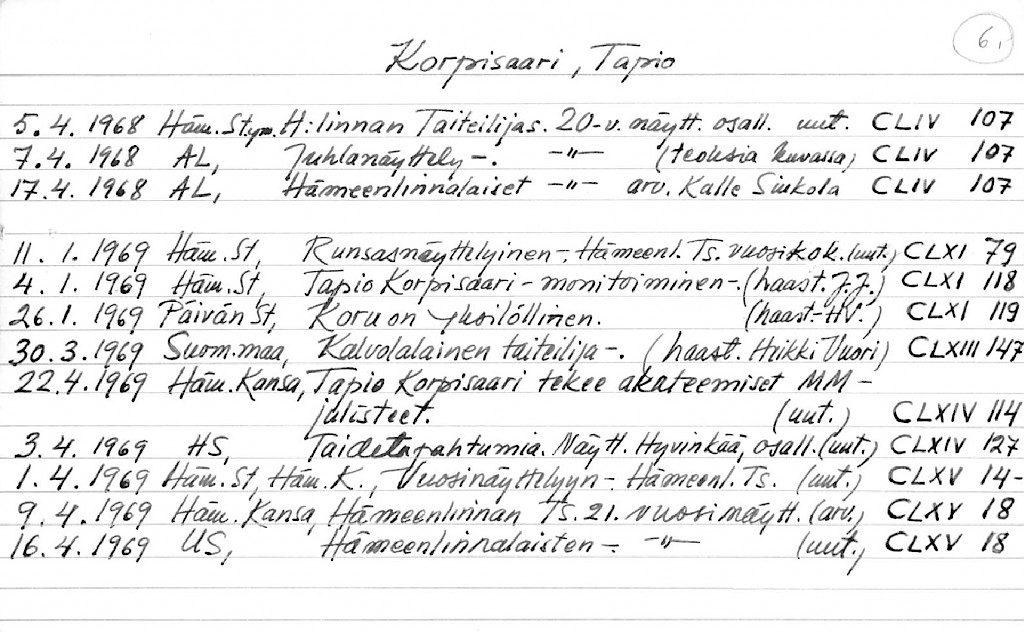 6.
Korpisaari, Tapio
5.4. 1968 Häm. St ym. H:linnan Taiteilijas. 20-v. näytt. osall. uut. CLIV 107
7.4. 1968 AL, Juhlanäyttely-. -"- (teoksia kuvassa) CLIV 107
17.4. 1968 AL, Hämeenlinnalaiset -"- arv. Kalle Siukola CLIV 107
11. 1. 1969 Häm. St, Runsasnäyttelyinen-, Hämeenl. Ts. vuosikok. (uut.) CLXI 79
4. 1. 1969 Häm. St, Tapio Korpisaari - monitoiminen-. (haast. J.J.) CLXI 118
26.1. 1969 Päivän St, Koru on yksilöllinen. (haast.-HV.) CLXI 119
30.3.1969 Suom.maa, Kalvolalainen taiteilija-. (haast. Heikki Vuori) CLXIII 147
22.4.1969 Häm. Kansa, Tapio Korpisaari tekee akateemiset MM-
julisteet. (uut.) CLXIV 114
3. 4. 1969 HS, Taidetapahtumia. Näytt. Hyvinkää, osall. (uut.) CLXIV 127
1. 4. 1969 Häm. St, Häm. K., Vuosinäyttelyyn-. Hämeenl. Ts. (uut.) CLXV 14-
9. 4. 1969 Häm. Kansa, Hämeenlinnan Ts. 21. vuosinäytt. (arv.) CLXV 18
16.4. 1969 US, Hämeenlinnalaisten-. -"- (uut.) CLXV 18